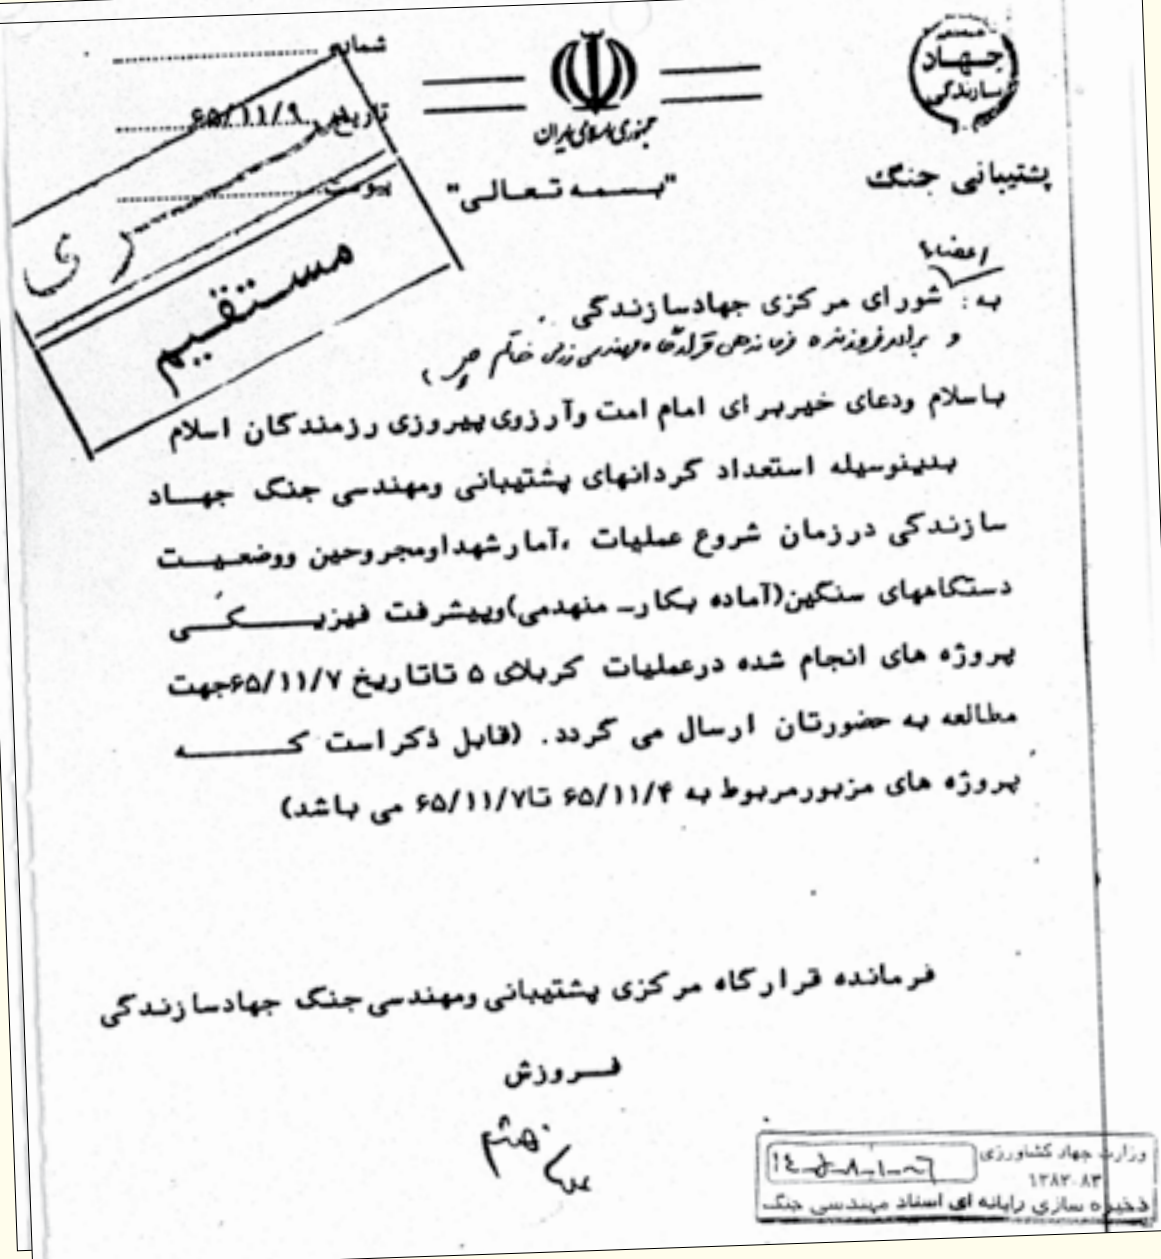 شماره
تاریخ ۶۵/۱۱/۹
پیوست
سری
مستقیم
جمهوری اسلامی ایران
"بسمه تعالی"
جهاد
سازندگی
پشتیبانی جنگ
اعضاء
به: شورای مرکزی جهادسازندگی .
و برادر فروزنده فرماندهی قرارگاه مهندسی رزمی خاتم
باسلام ودعای خیربرای امام امت وآرزوی پیروزی رزمندگان اسلام
بدینوسیله استعداد گردانهای پشتیبانی ومهندسی جنگ جهاد
سازندگی درزمان شروع عملیات ،آمارشهداومجروحین ووضعیت
دستگاههای سنگین(آماده بکار_ منهدمی)وپیشرفت فیزیکی
پروژه های انجام شده درعملیات کربلای ۵ تاتاریخ ۶۵/۱۱/۷جهت
مطالعه به حضورتان ارسال می گردد. (قابل ذکراست که
پروژه های مزبورمربوط به ۶۵/۱۱/۴ تا۶۵/۱۱/۷ می باشد)
فرمانده قرارگاه مرکزی پشتیبانی ومهندسی جنگ جهادسازندگی
فروزش
وزارت جهاد کشاورزی
۱۳۸۲-۸۳
ذخیره سازی رایانه ای اسناد مهندسی جنگ